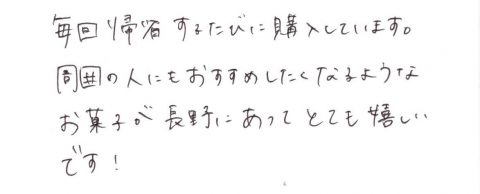 毎回帰省するたびに購入しています。
周囲の人にもおすすめしたくなるような
お菓子が長野にあってとても嬉しい
です！